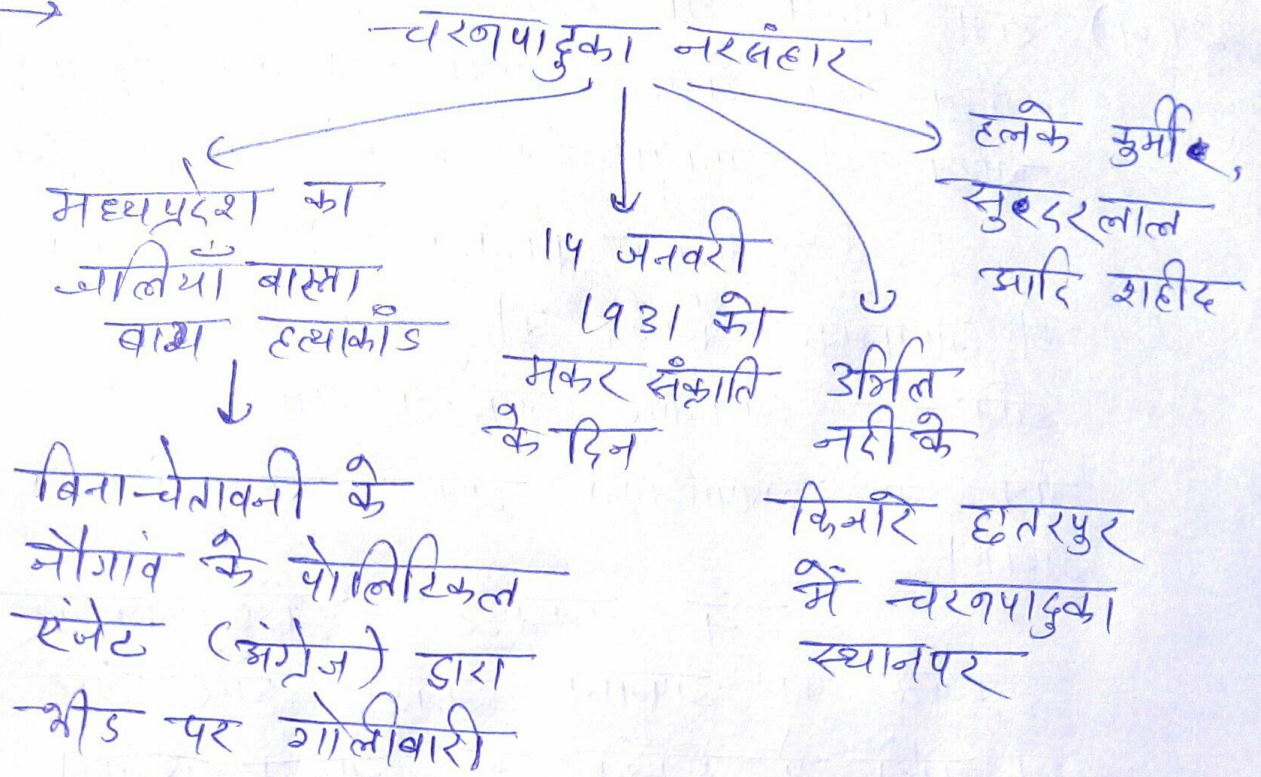 चरणपादुका नरसंहार
मध्यप्रदेश का
जलियाँ वाला
बाग हत्याकांड
बिना चेतावनी के
नौगांव के पोलिटिकल
एंजेट (अंग्रेज) द्वारा
भीड पर गोलीबारी
14 जनवरी
1931 को
मकर संक्राति
के दिन
उर्मिल
नदी के
किनारे छतरपुर
में चरणपादुका
स्थान पर
हलके कुर्मी,
सुन्दरलाल
आदि शहीद